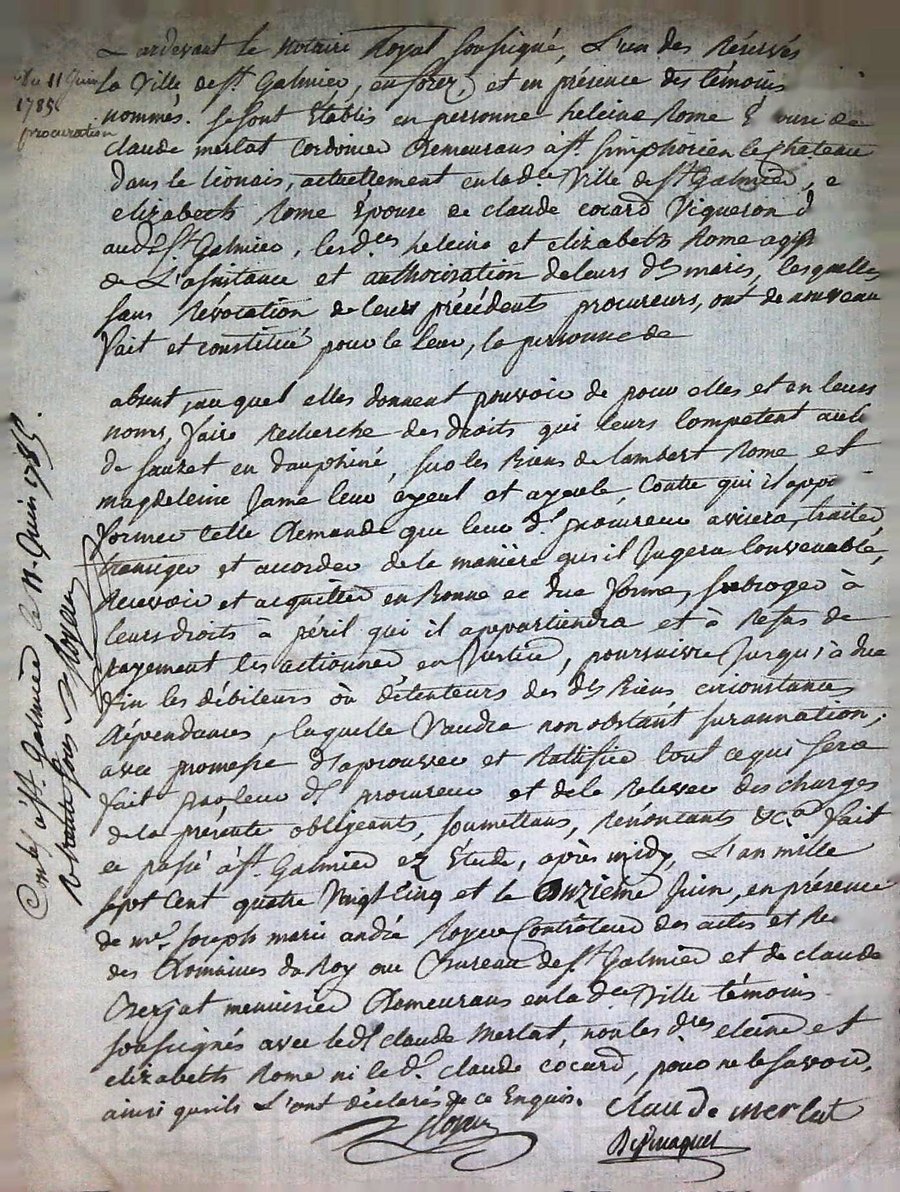 du 11 Juin
1785
procuration
Pardevant le Notaire Royal soussigné, L'un des Réservés
la Ville de st. Galmier, en forez, et en présence des témoins
nommés. se sont Etablis en personne heleine Rome E ouse de
claude merlat Cordonier demeurans à st. simphorien le chateau
dans le lionais, actuellement en lad.te Ville de st Galmier, e
elizabeth Rome Epouse de claude cocard Vigneron d
aud. st. Galmier, lesd.es heleine et elizabeth Rome agis
de L'assistance et authorisation de leurs ds maris, lesquelles
sans Révocation de leurs précédents procureurs, ont de nouveau
fait et constitué pour le leur, la personne de
absent, au quel elles donnent pouvoir de pour elles et en leurs
noms, faire Recherche des droits qui leurs competent au
de sauzet en dauphiné, sur les Biens de lambert Rome et
magdeleine Jame leur ayeul et ayeule, Contre qui il appa
former telle demande que leur d. procureur avisera, traiter
transiger et accorder de la manière qu'il Jugera Convenable,
Recevoir et acquitter en Bonne et due forme, subroger à
leurs droits à péril qui il appartiendra et à Refus de
payement les actionner en Justice, poursuivre Jusqu'à due
fin les débiteurs où détenteurs des ds Biens circonstances
dépendances, laquelle Vaudra non obstant surannation;
avec promesse d'aprouver et Rattifier tout ce qui sera
fait par leur d. procureur et de le Relever des charges
de la présente obligeants, soumettans, Rénoncants &c.a fait
et passé à st. Galmier ez Etude, après midy, L'an mille
sept Cent quatre Vingt Cinq et le onzieme Juin, en présence
de mr. Joseph marie andré Royer Contrôleur des actes et Re
des domaines du Roy au Bureau de st Galmier et de claude
menuisier demeurans en lad.te Ville témoins
soussignés avec led. claude Merlat, non les d.tes eleine et
elizabeth Rome ni le d. claude cocard, pour ne le savoir,
ainsi qu'ils L'ont déclarés de ce Enquis.
claude merlat
Royer
Con.lé à st. Galmier le 11. Juin 1785.
Royer